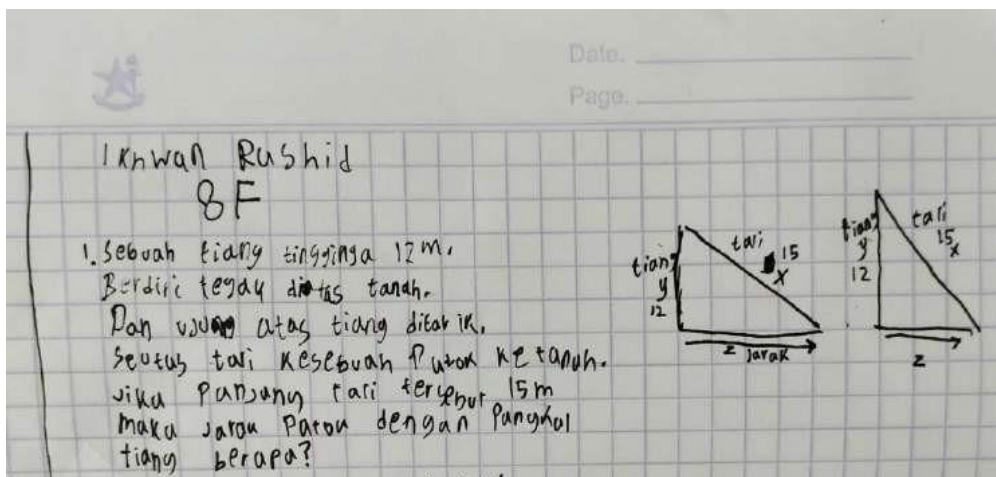 Date.
Page.
Ikhwan Rushid
8F
1. Sebuah tiang tingginya 12 m.
Berdiri tegak diatas tanah.
Dan ujung atas tiang ditarik.
Seutas tali kesebuah Patok ke tanah.
Jika Panjang tali tersebut 15 m
maka Jarak Patok dengan Pangkal
tiang berapa?
tiang
y
12
tali
15
x
z Jarak
tiang
y
12
tali
15
x
z